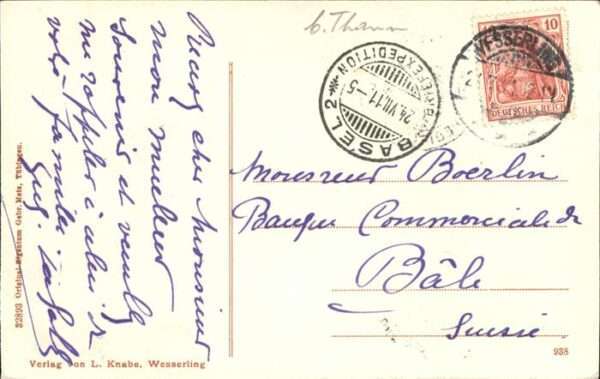 b. Thann
10
WESSERLING
DEUTSCHES REICH
BASEL 2
BRIEFEXPEDITION
24.VII.11.-5
Monsieur Boerlin
Banque Commerciale de
Bâle
Suisse
cher Monsieur
mon meilleur
Souvenir et veuillez
me rappeler à celui de
votre famille
32893 Original-Eigentum Gebr. Metz, Tübingen.
Verlag von L. Knabe, Wesserling
938